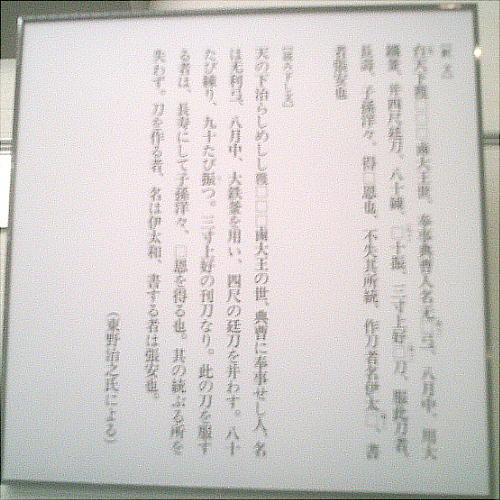 ［銘文］
台天下獲□□□鹵大王世、奉事典曹人名无□弖、八月中、用大
鐵釜、并四尺廷刀、八十錬、□十振、三寸上好□刀、服此刀者、
長壽、子孫洋々、得□恩也、不失其所統、作刀者名伊太□、書
者張安也
［読み下し文］
天の下治らしめしし獲□□□鹵大王の世、典曹に奉事せし人、名
は无利弖、八月中、大鉄釜を用い、四尺の廷刀を并わす。八十
たび練り、九十たび振つ。三寸上好の刊刀なり。此の刀を服す
る者は、長寿にして子孫洋々、□恩を得る也。其の統ぶる所を
失わず。刀を作る者、名は伊太和、書する者は張安也。
（東野治之氏による）